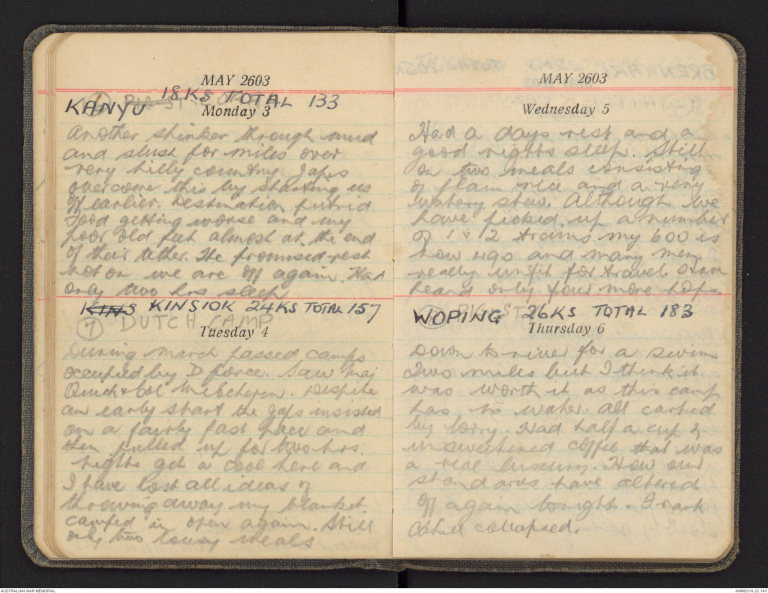 MAY 2603
KANYU 18KS TOTAL 133
Monday 3
Another stinker through mud
and slush for miles over
very hilly country. Japs
overcome this by starting us
off earlier. Destination putrid
Food getting worse and my
poor old feet almost at the end
of their tether. The promised rest
not on we are off again. Had
only two hrs sleep
KINSIOK 24KS TOTAL 157
7 DUTCH CAMP
Tuesday 4
During march passed camps
occupied by D force. Saw Maj
Quick & Col McEachern. Despite
an early start the Japs insisted
on a fairly fast pace and
then pulled up for two hrs.
nights get a cool here and
I have lost all ideas of
throwing away my blanket.
camped in open again. Still
only two lousy meals
MAY 2603
Wednesday 5
Had a days rest and a
good nights sleep. Still
on two meals consisting
of plain rice and a very
watery stew. Although we
have picked up a number
of 1 & 2 trains my 600 is
now 490 and many men
really unfit for travel
heard only four more hops
WOPING 26KS TOTAL 183
Thursday 6
Down to river for a swim
Two miles but I think it
was worth it as this camp
has no water. All carted
by lorry. Had half a cup of
unsweetened coffee that was
a real luxury. How our
standards have altered
Off again tonight. Frank
collapsed.
AUSTRALIAN WAR MEMORIAL
AWM2019.22.143